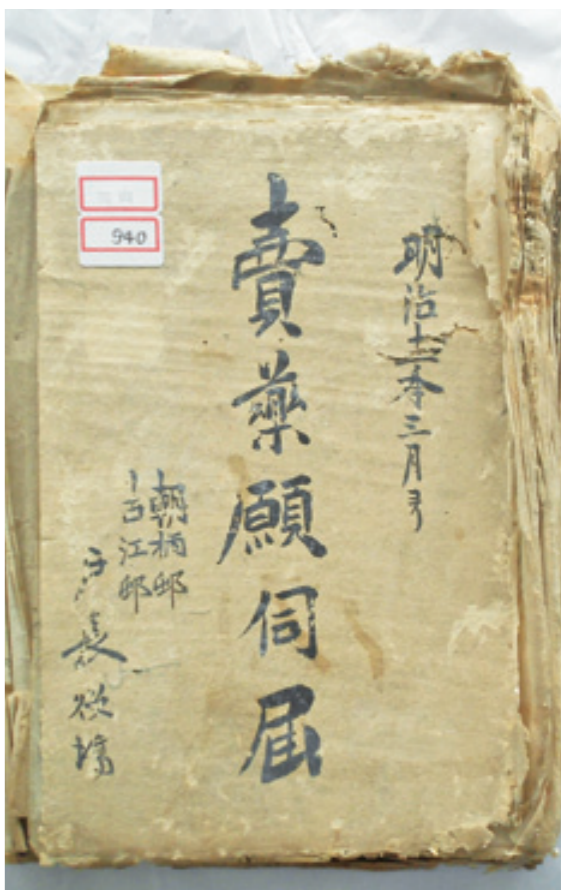 明治十二年三月ゟ
賣藥願伺届
朝柄邨
古江邨
戸長役場
940